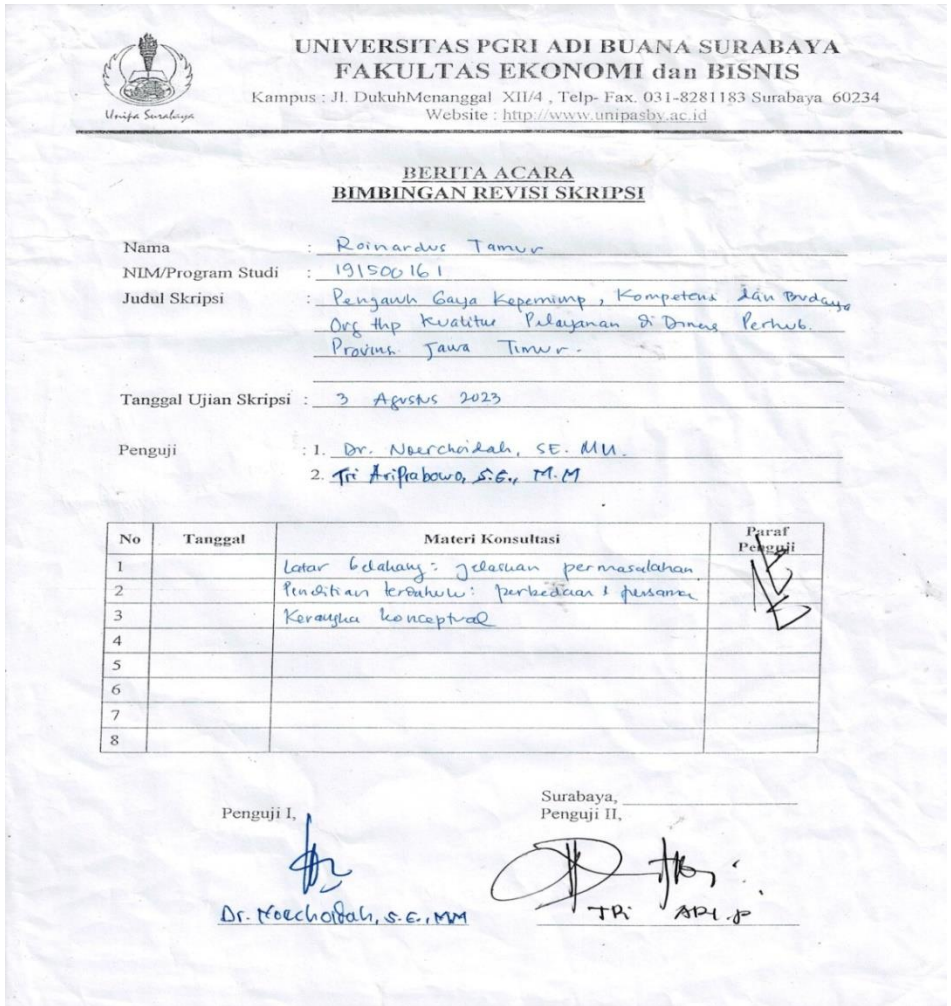 UNIVERSITAS PGRI ADI BUANA SURABAYA
FAKULTAS EKONOMI dan BISNIS
Kampus : Jl. DukuhMenanggal XII/4 , Telp- Fax. 031-8281183 Surabaya 60234
Website : http://www.unipasby.ac.id
Unipa Surabaya
BERITA ACARA
BIMBINGAN REVISI SKRIPSI
Nama : Roinardus Tamur
NIM/Program Studi : 191500161
Judul Skripsi : Pengaruh Gaya Kepemimp, Kompetensi dan Budaya
Org thp Kualitas Pelayanan di Dinas Perhub.
Provinsi Jawa Timur.
Tanggal Ujian Skripsi : 3 Agustus 2023
Penguji : 1. Dr. Noerchoidah, SE. MM.
2. Tri Ariprabowo, S.E., M.M
No Tanggal Materi Konsultasi Paraf Penguji
1 Latar belakang: jelaskan permasalahan
2 Penelitian terdahulu: perbedaan & persama
3 Kerangka konceptual
4
5
6
7
8
Surabaya,
Penguji I, Penguji II,
Dr. Noerchoidah, S.E., MM TRi ARI.P